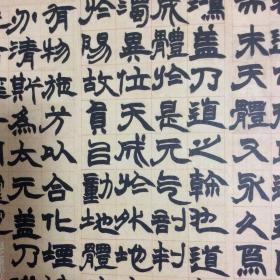 末天體又永久焉
鴻蓋乃道之幹也道
成體於是元气剖判
濁異位天成於外地
於陽故員㠯動地體
有物施方以合化堙
清斯為太元蓋乃